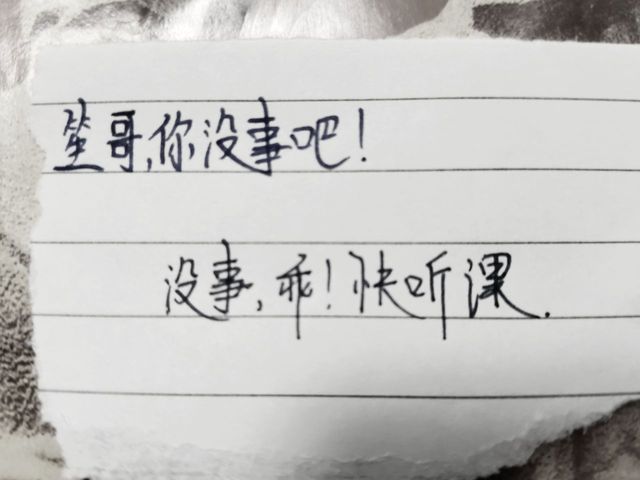 笙哥,你没事吧!
没事,乖!快听课.